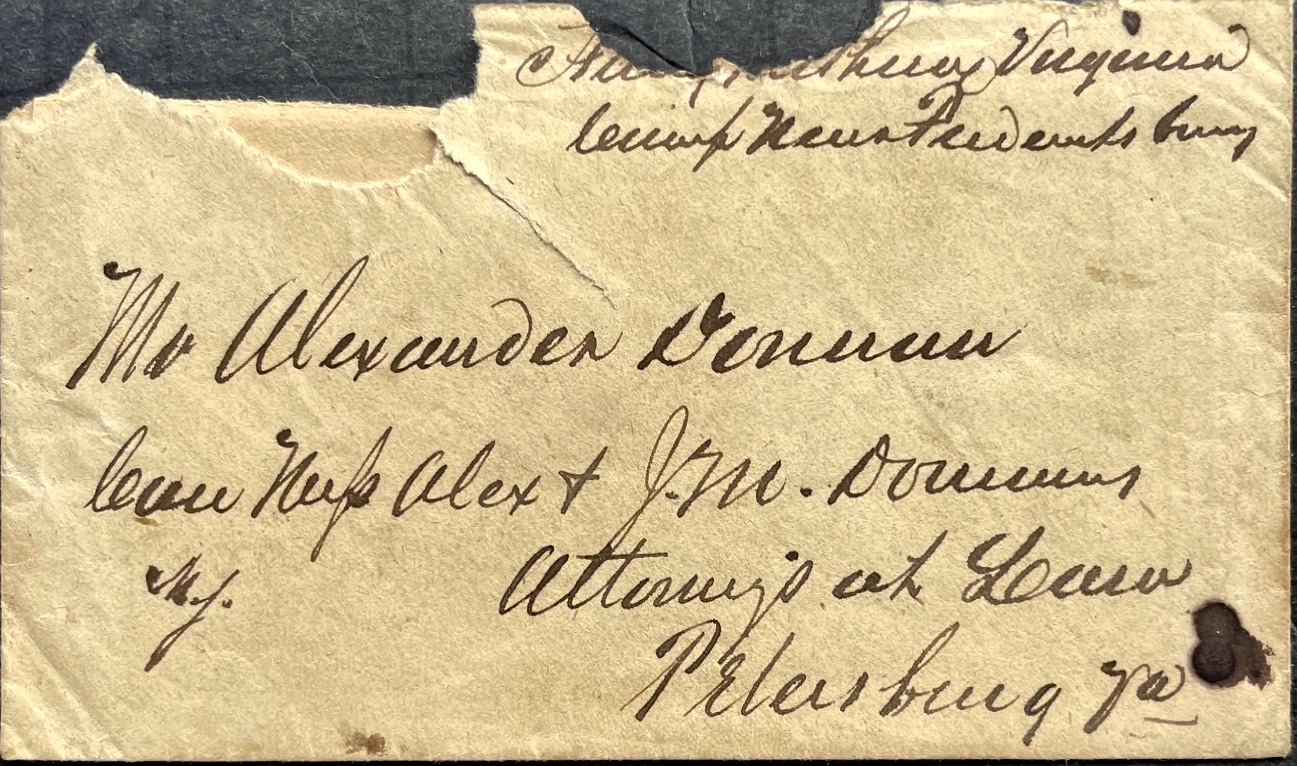 Army Northern Virginia
Camp Near Fredericksburg
Mr Alexander Donnan
Care Mess Alex & J. M. Donnans
Attorneys at Law
Petersburg Va